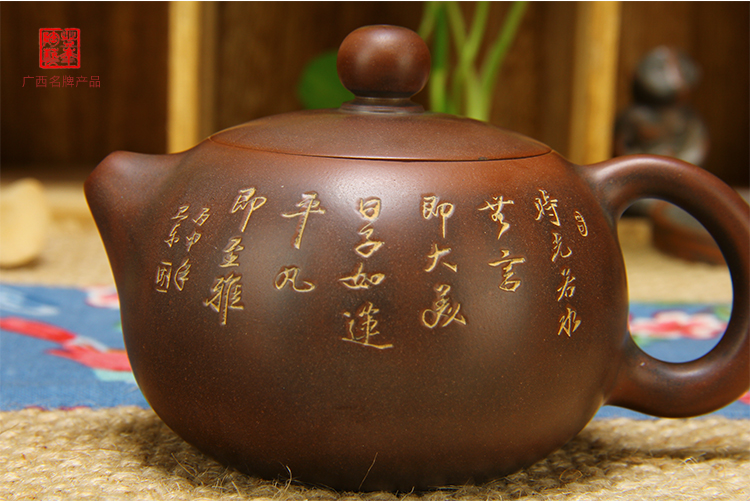 广西名牌产品
时光若水
無言
即大美
日子如莲
平凡
即至雅
丙申年